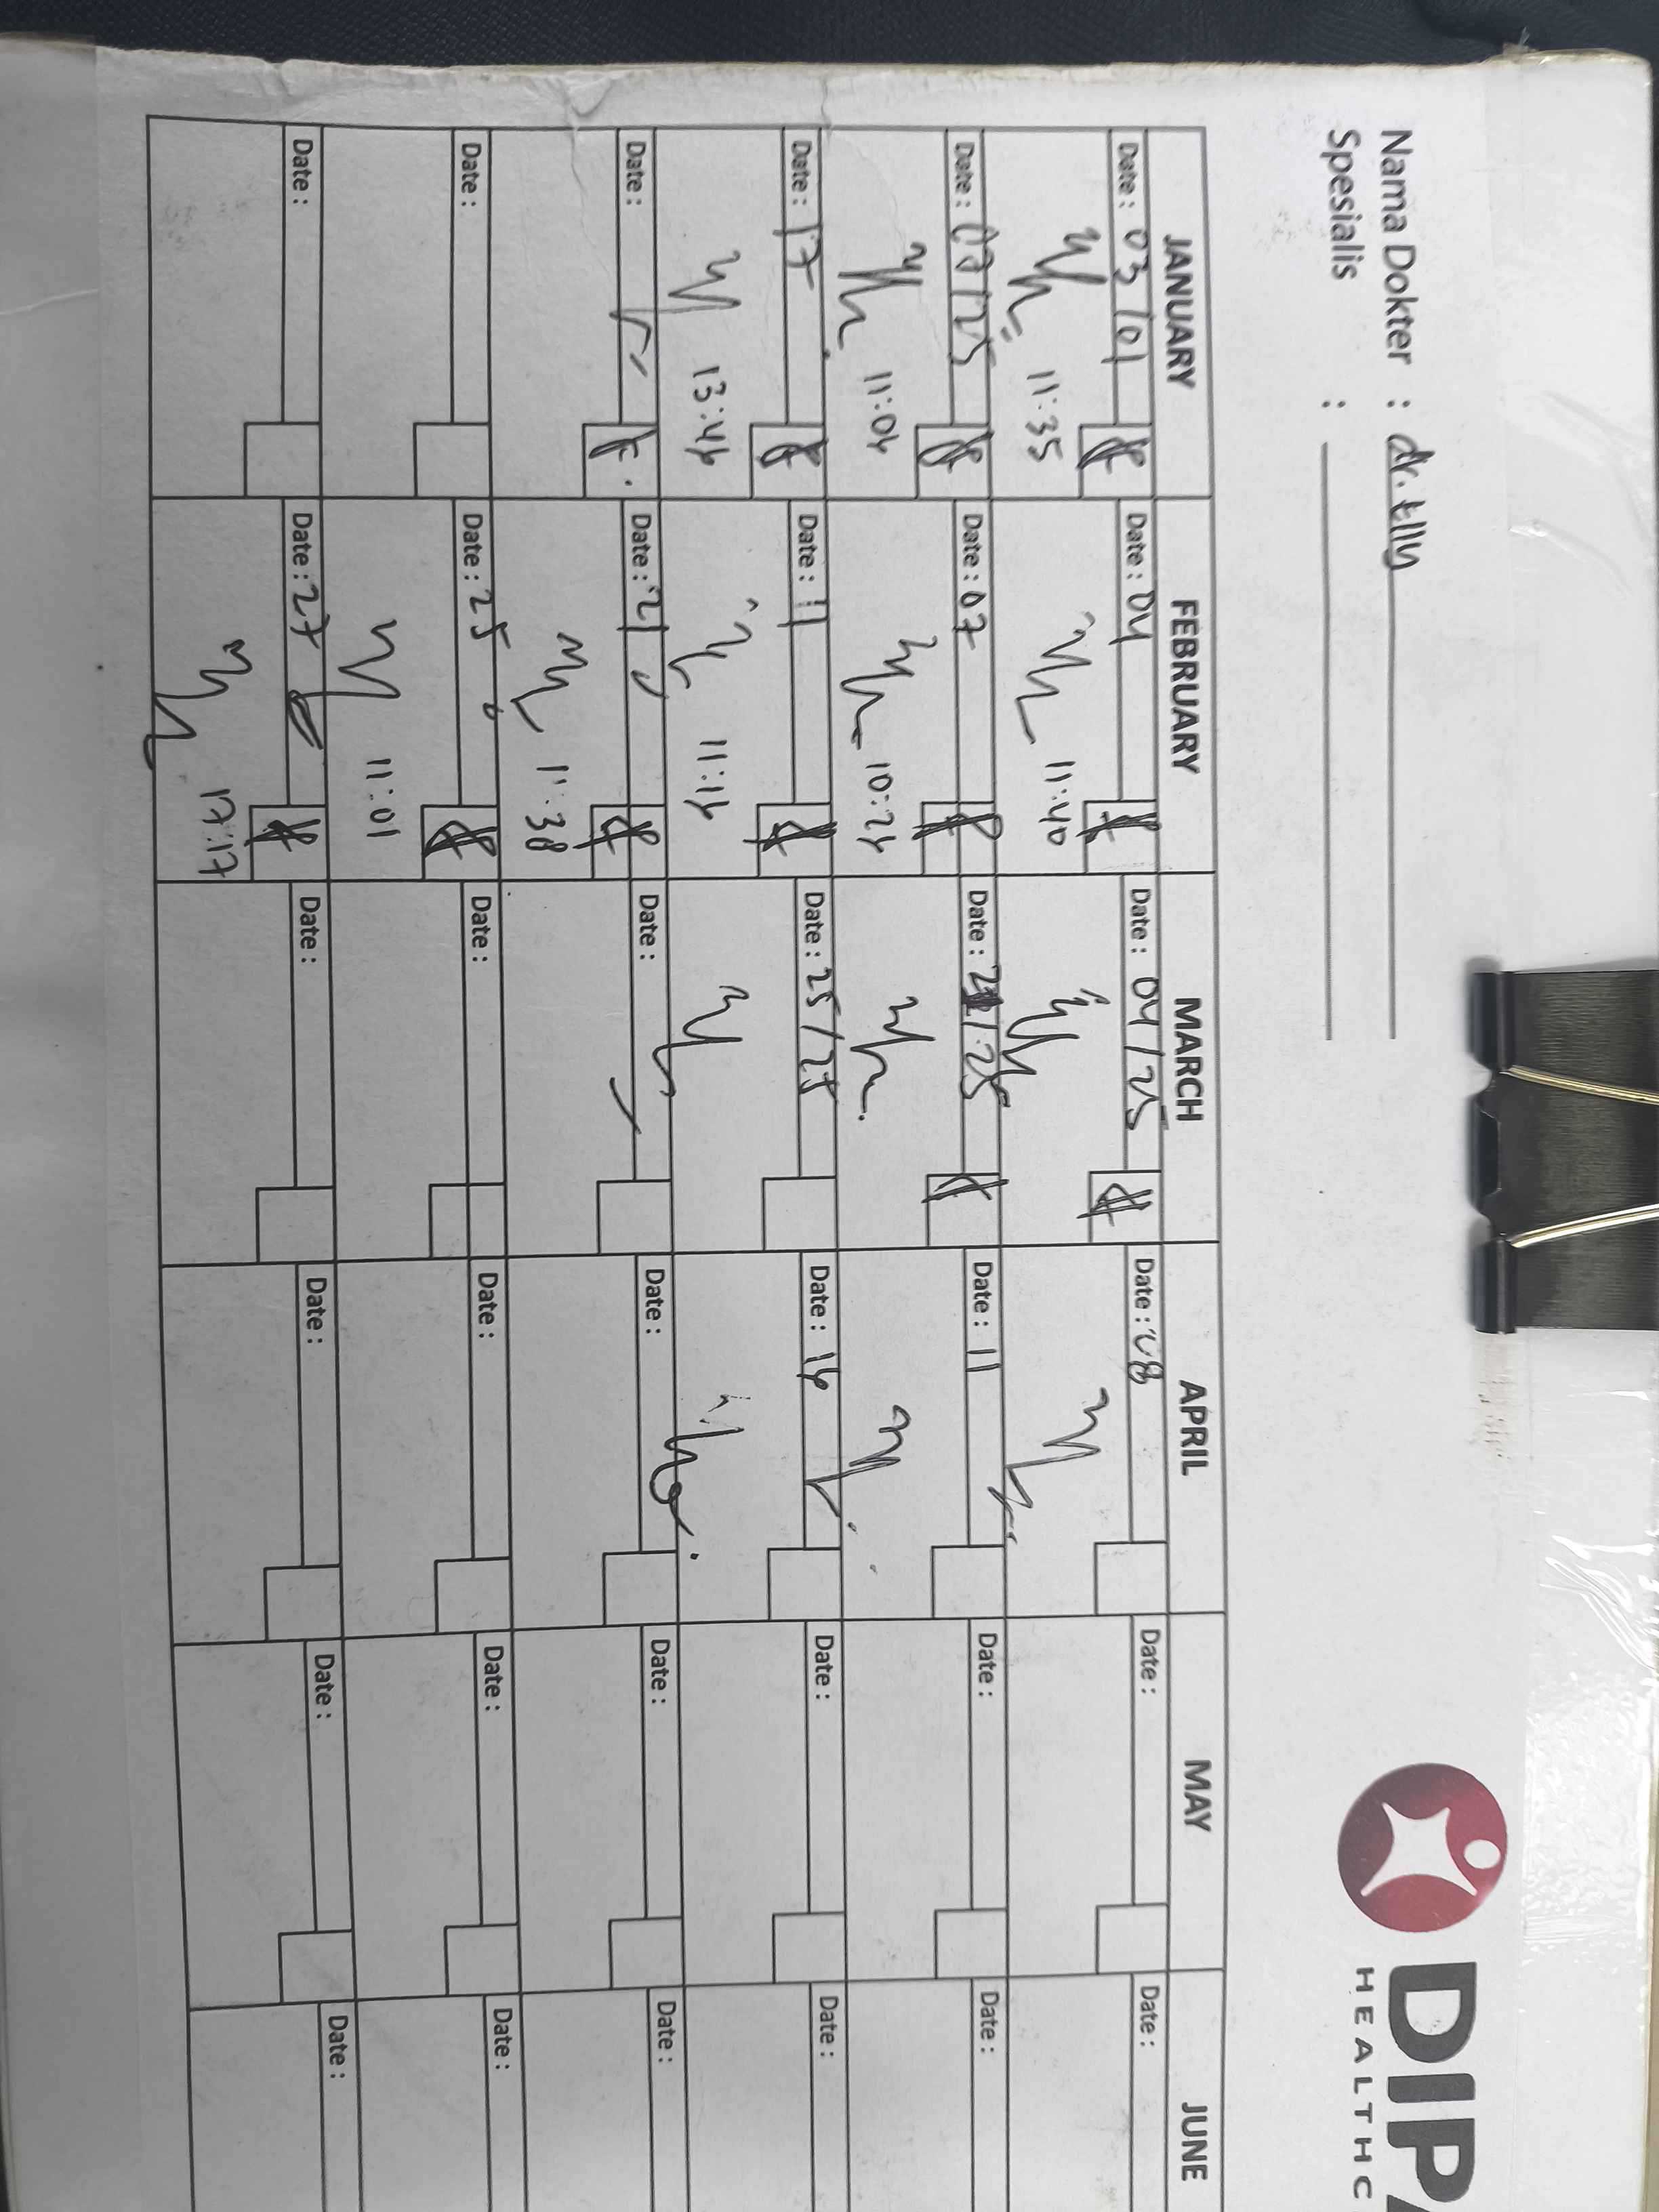 Nama Dokter : dr. Elly
Spesialis :
DIPA
HEALTHC
JANUARY FEBRUARY MARCH APRIL MAY JUNE
Date : 03/01 Date : 04 Date : 04/25 Date : 08 Date : Date :
11:35 11:40
Date : 07/25 Date : 07 Date : 21/25 Date : 11 Date : Date :
11:04 10:26
Date : 17 Date : 11 Date : 25/25 Date : 16 Date : Date :
13:46 11:16
Date : Date : 21 Date : Date : Date : Date :
11:38
Date : Date : 25 Date : Date : Date : Date :
11:01
Date : Date : 27 Date : Date : Date : Date :
17:17